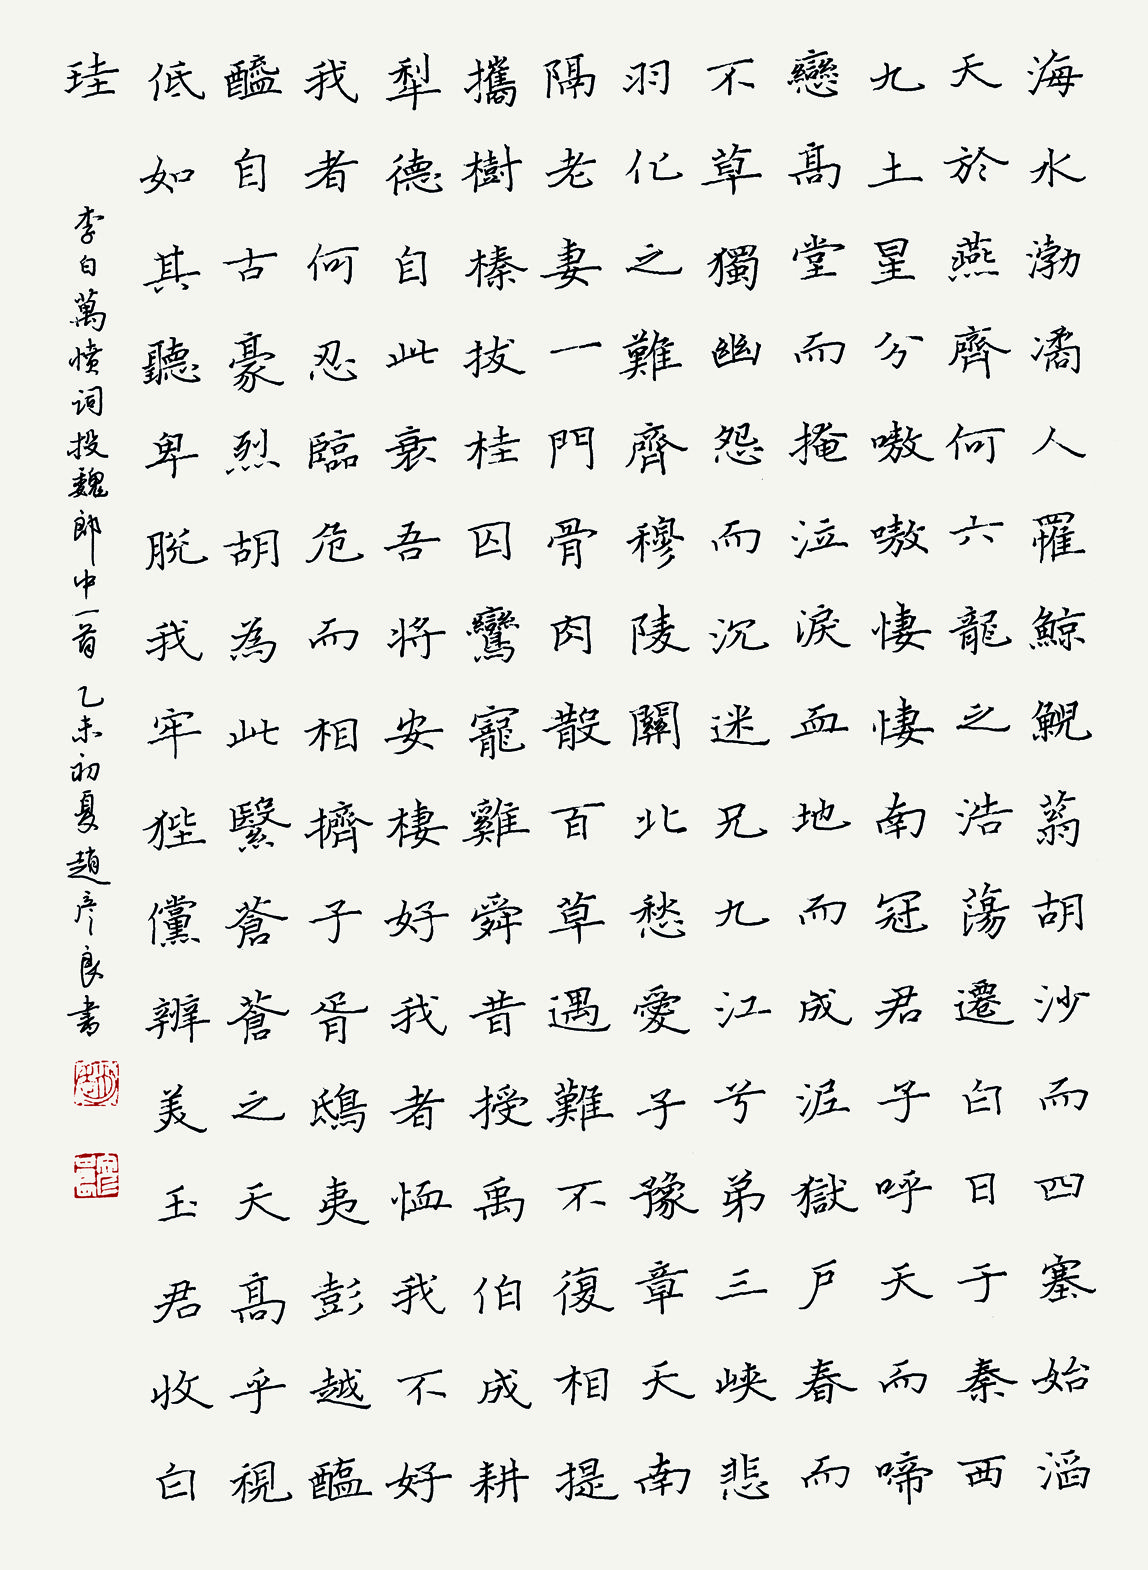 海水渤潏人罹鯨鯢蓊胡沙而四塞始滔
天於燕齊何六龍之浩蕩遷白日于秦西
九土星分嗷嗷悽悽南冠君子呼天而啼
戀高堂而掩泣淚血地而成泥獄戶春而
不草獨幽怨而沉迷兄九江兮弟三峽悲
羽化之難齊穆陵關北愁愛子豫章天南
隔老妻一門骨肉散百草遇難不復相提
攜樹榛拔桂囚鸞寵雞舜昔授禹伯成耕
犁德自此衰吾將安棲好我者恤我不好
我者何忍臨危而相擠子胥鴟夷彭越醢
醯自古豪烈胡為此繫蒼蒼之天高乎視
低如其聽卑脫我牢狴儻辨美玉君收白
珪
李白萬憤詞投魏郎中一首 乙未初夏趙彥良書